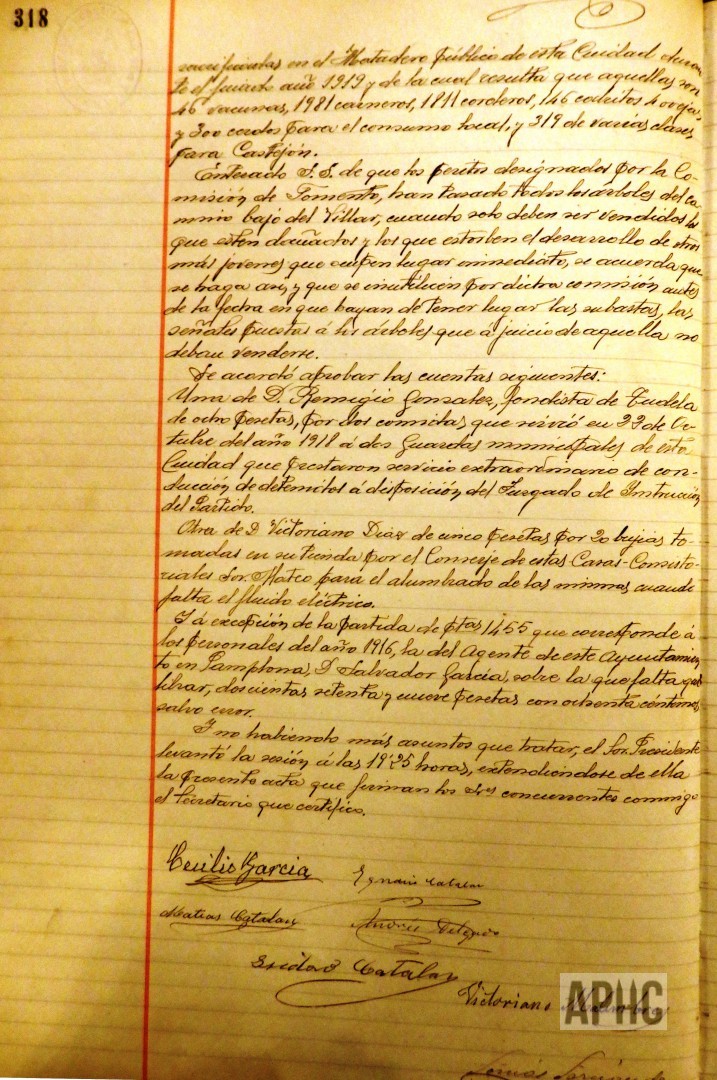 318
sacrificadas en el Matadero público de esta Ciudad duran-
te el finado año 1919 y de la cual resulta que aquellas son
46 vacunas, 1981 carneros, 1811 corderos, 146 cabritos 4 ovejas
y 300 cerdos para el consumo local, y 319 de varias clases
para Castejón.
Enterado S.S. de que los peritos designados por la Co-
misión de Fomento, han tasado todos los árboles del ca-
mino bajo del Villar, cuando solo deben ser vendidos los
que estén dañados y los que estorben el desarrollo de otros
más jovenes que ocupen lugar inmediato, se acuerda que
se haga así, y que se inutilicen por dicha comisión antes
de la fecha en que hayan de tener lugar las subastas, las
señales puestas á los árboles que á juicio de aquella no
deban venderse.
Se acordó aprobar las cuentas siguientes:
Una de D. Remigio Gonzalez, fondista de Tudela
de ocho pesetas, por dos comidas que sirvió en 22 de Oc-
tubre del año 1918 á dos Guardas municipales de esta
Ciudad que prestaron servicio extraordinario de con-
ducción de detenidos á disposición del Juzgado de Instrucción
del Partido.
Otra de D Victoriano Diaz de cinco pesetas por 20 bujias to-
madas en su tienda por el Conserje de estas Casas-Consisto-
riales Sor. Mateo para el alumbrado de las mismas cuando
falta el fluido eléctrico.
Y á excepción de la partida de ptas 14'55 que corresponde á
los personales del año 1916, la del Agente de este Ayuntamien-
to en Pamplona, D. Salvador García, sobre la que falta que
librar, doscientas setenta y nueve pesetas con ochenta céntimos,
salvo error.
Y no habiendo más asuntos que tratar, el Sor. Presidente
levantó la sesión á las 19'25 horas, extendiéndose de ella
la presente acta que firman los Sres concurrentes conmigo
el Secretario que certifico.
Cecilio Garcia
Ignacio Catalan
Matias Catalan
Andrés Delgado
Isidro Catalan
Victoriano
APHC
Tomás